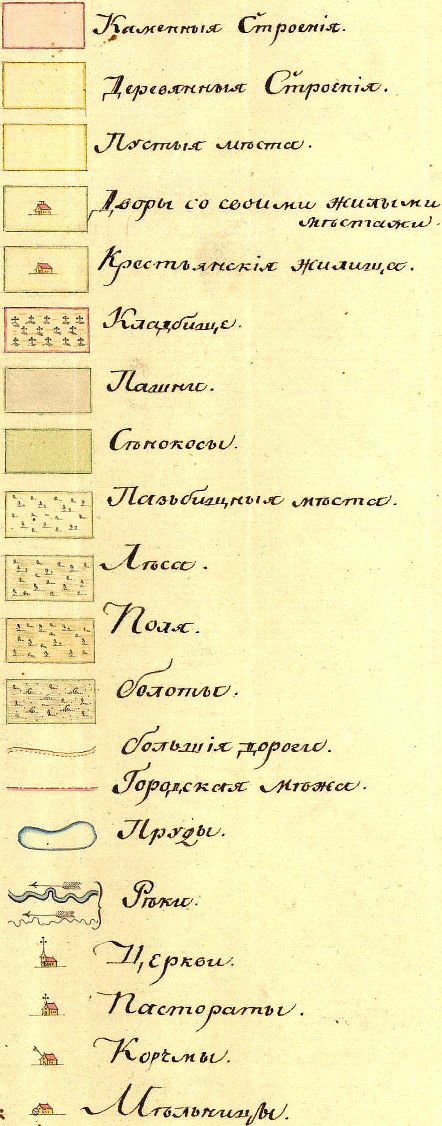 Каменныя Строенія.
Деревянныя Строенія.
Пустыя мѣста.
Дворы со своими жилыми
мѣстами.
Крестьянскія жилища.
Кладбище.
Пашни.
Сѣнокосы.
Пазьбищныя мѣста.
Лѣса.
Поля.
болоты.
большія дороги.
Городская мѣжа.
Пруды.
Рѣки.
Церкви.
Пастораты.
Корчмы.
Мѣльницы.